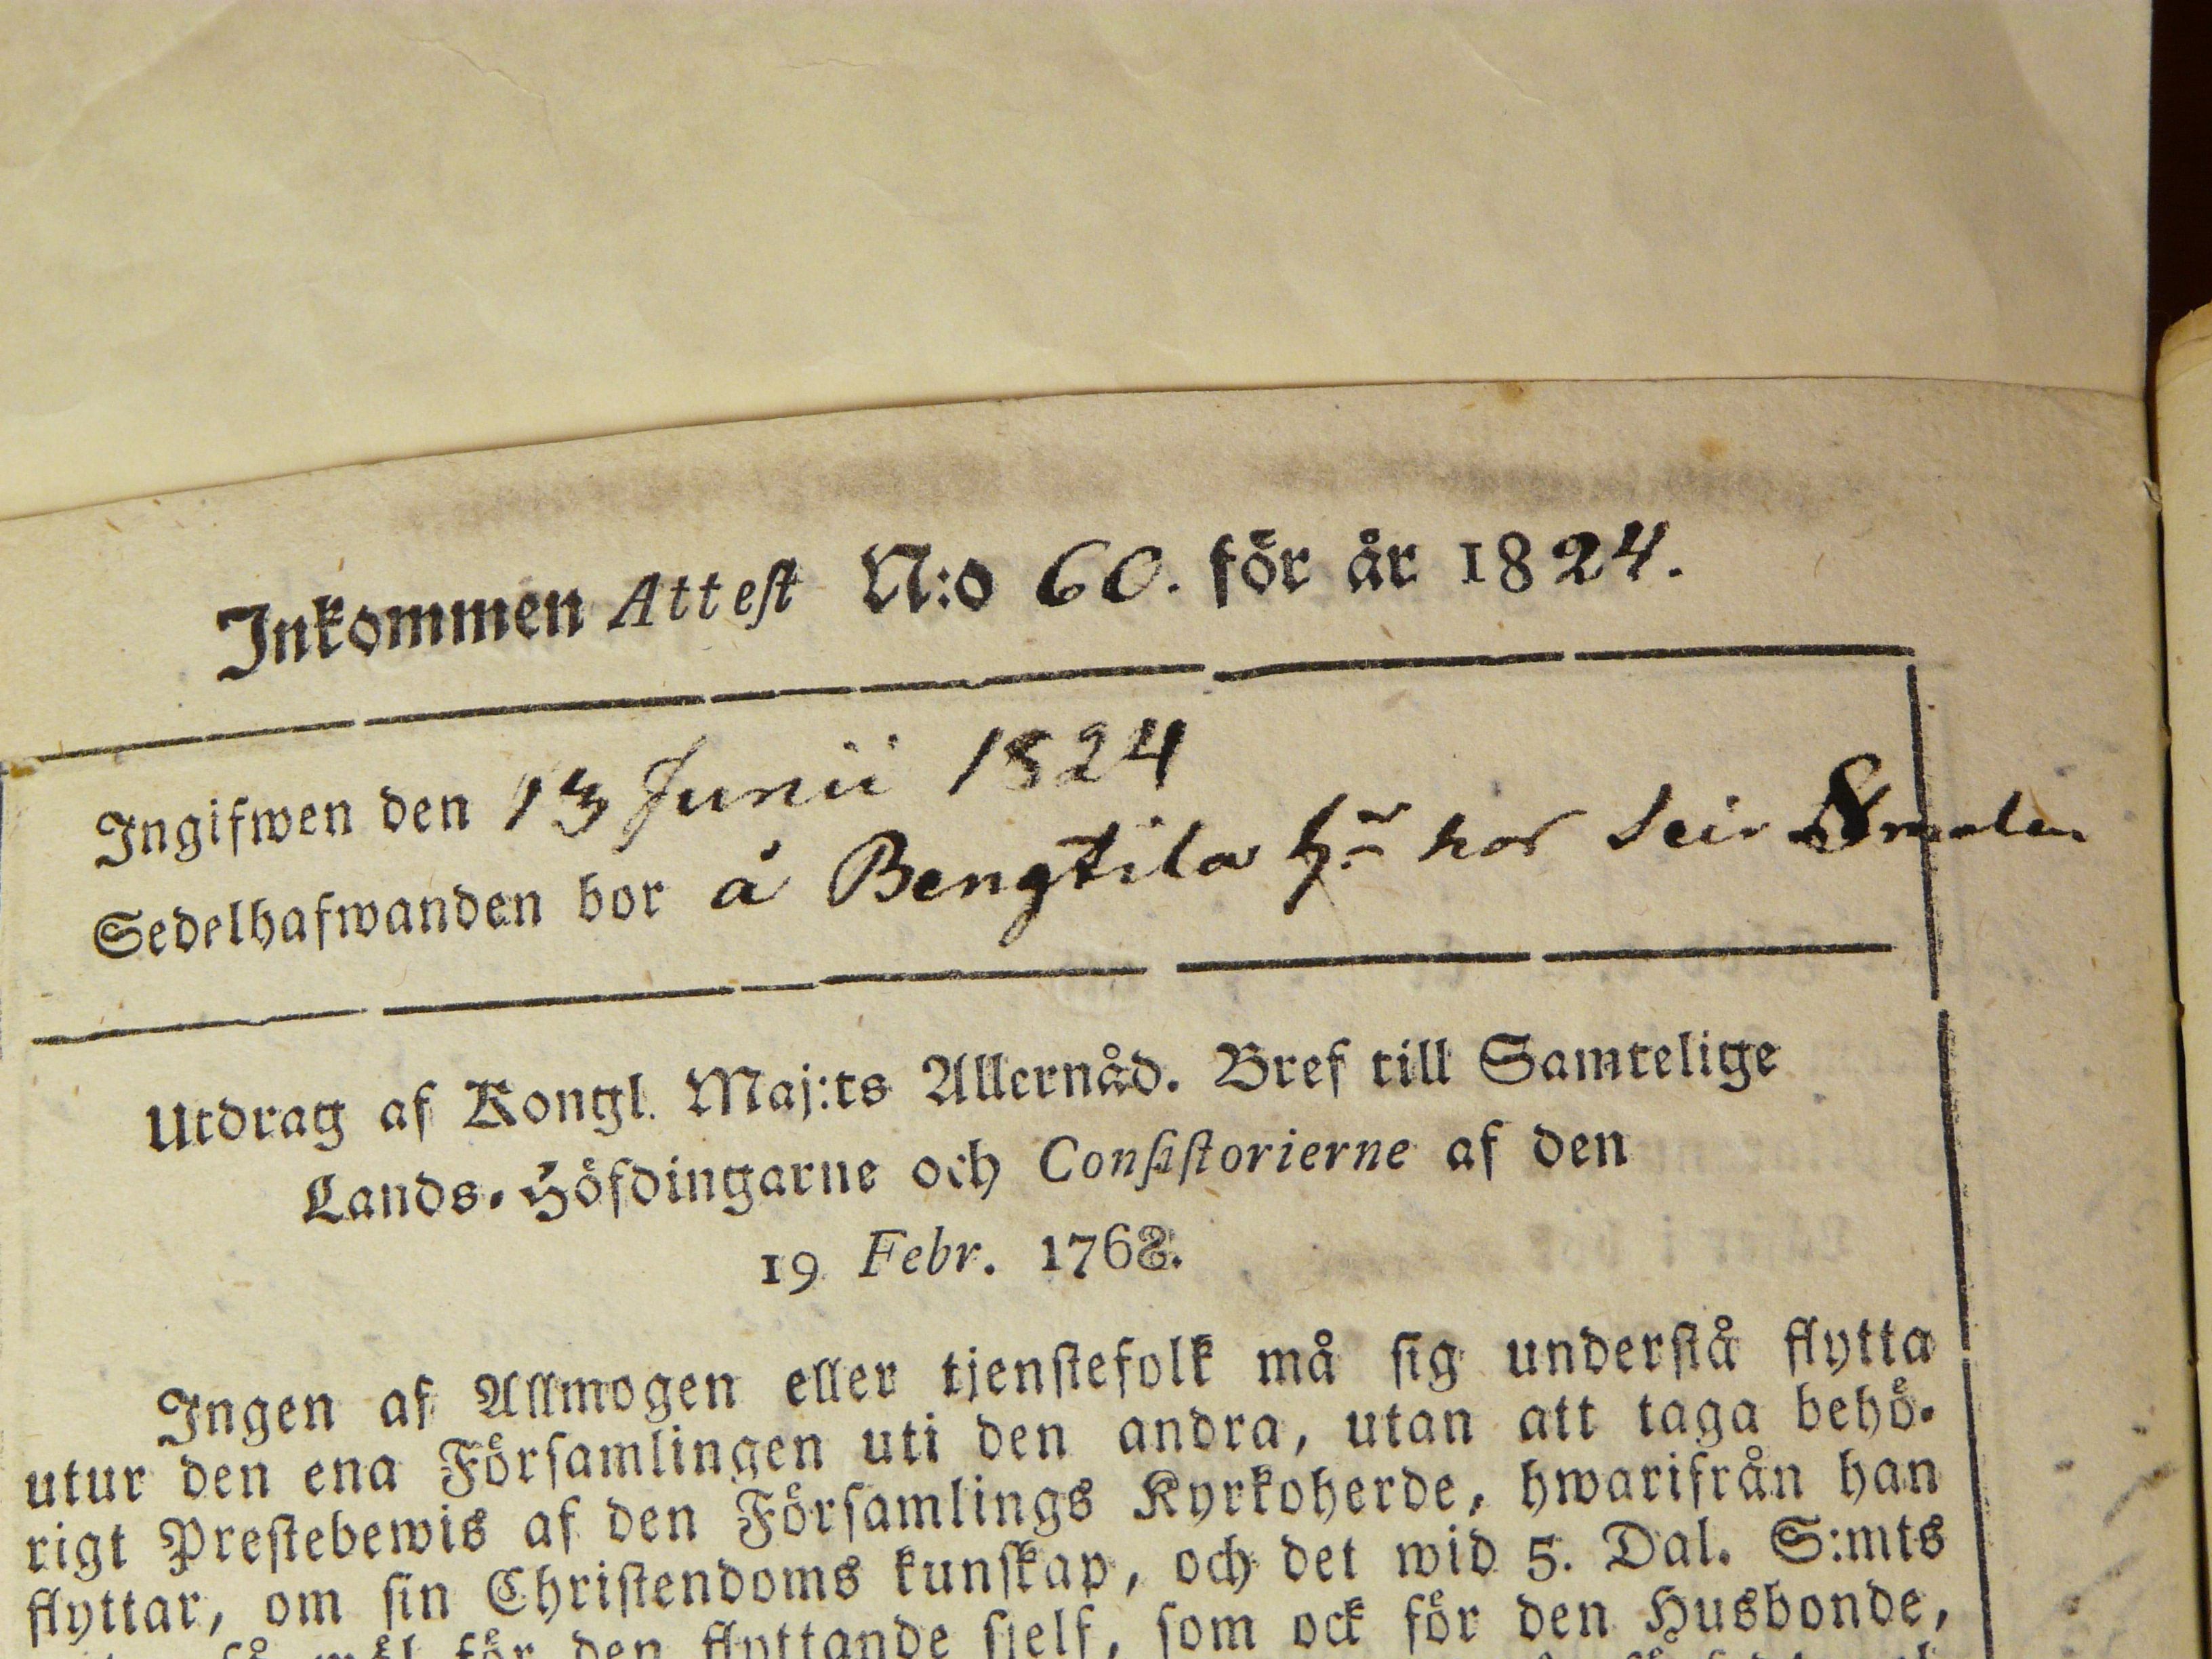 Inkommen Attest N:o 60. för år 1824.
Ingifwen den 13 Junii 1824
Sedelhafwanden bor å Bengtila hos
Utdrag af Kongl. Maj:ts Allernåd. Bref till Samtelige
Lands-Höfdingarne och Consistorierne af den
19 Febr. 1768.
Ingen af Allmogen eller tjenstefolk må sig understå flytta
utur den ena Församlingen uti den andra, utan att taga behö-
rigt Prestebewis af den Församlings Kyrkoherde, hwarifrån han
flyttar, om sin Christendoms kunskap, och det wid 5. Dal. S:mts
för den flyttande sjelf, som ock för den Husbonde,